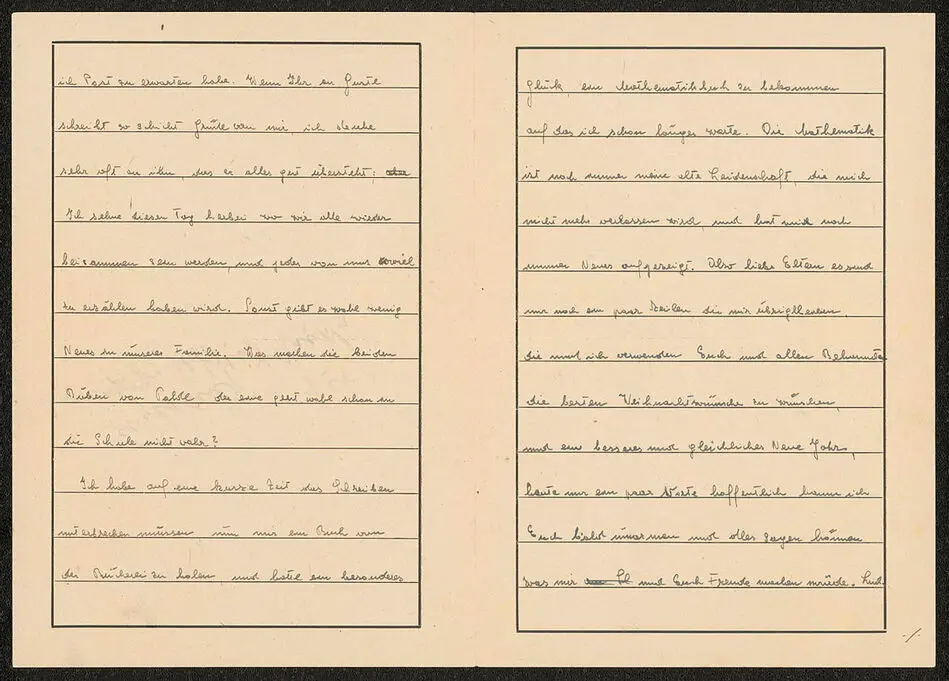 ich Post zu erwarten habe. Wenn Ihr an Gustl
schreibt so schickt Grüße von mir, ich denke
sehr oft an ihn, das er alles gut übersteht;
Ich sehne diesen Tag herbei wo wir alle wieder
beisammen sein werden, und jeder von uns soviel
zu erzählen haben wird. Sonst gibt es wohl wenig
Neues in unserer Familie. Was machen die beiden
Buben von der eine geht wohl schon in
die Schule nicht wahr?
Ich habe auf eine kurze Zeit das Schreiben
unterbrechen müssen um mir ein Buch von
der Bücherei zu holen, und hatte ein besonderes
Glück, ein Mathematikbuch zu bekommen
auf das ich schon länger warte. Die Mathematik
ist noch immer meine alte Leidenschaft, die mich
nicht mehr verlassen wird, und hat mir noch
immer Neues aufgezeigt. Also liebe Eltern es sind
nur noch ein paar Zeilen die mir übrigbleiben,
die muß ich verwenden Euch und allen Bekannten
die besten Weihnachtswünsche zu wünschen,
und ein besseres und glückliches Neue Jahr,
heute nur ein paar Worte hoffentlich kann ich
Euch bald umarmen und alles sagen können
was mir und Euch Freude machen würde. Und
./.